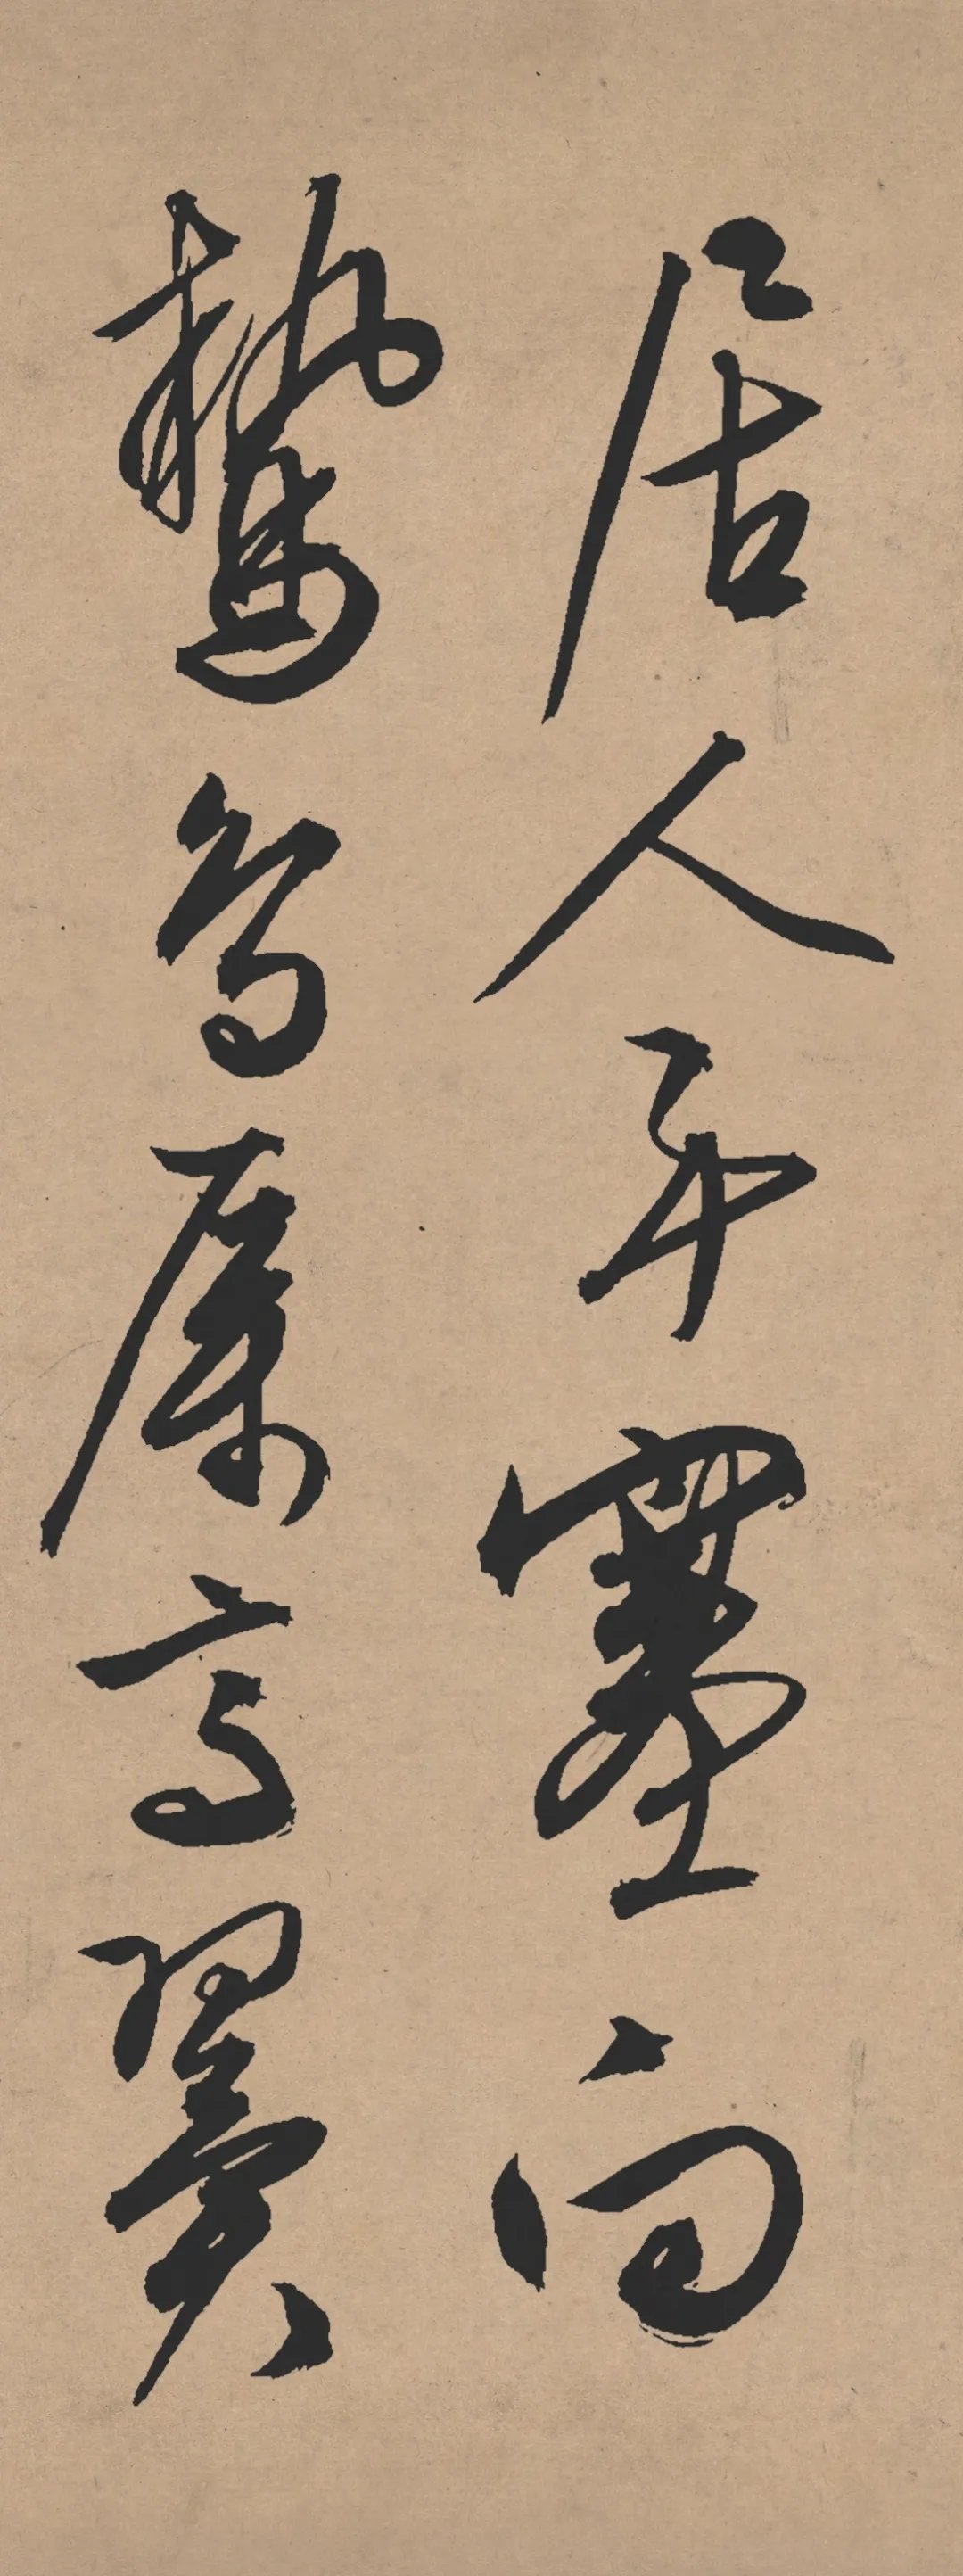 居人塞向
鷙鳥厲高翼